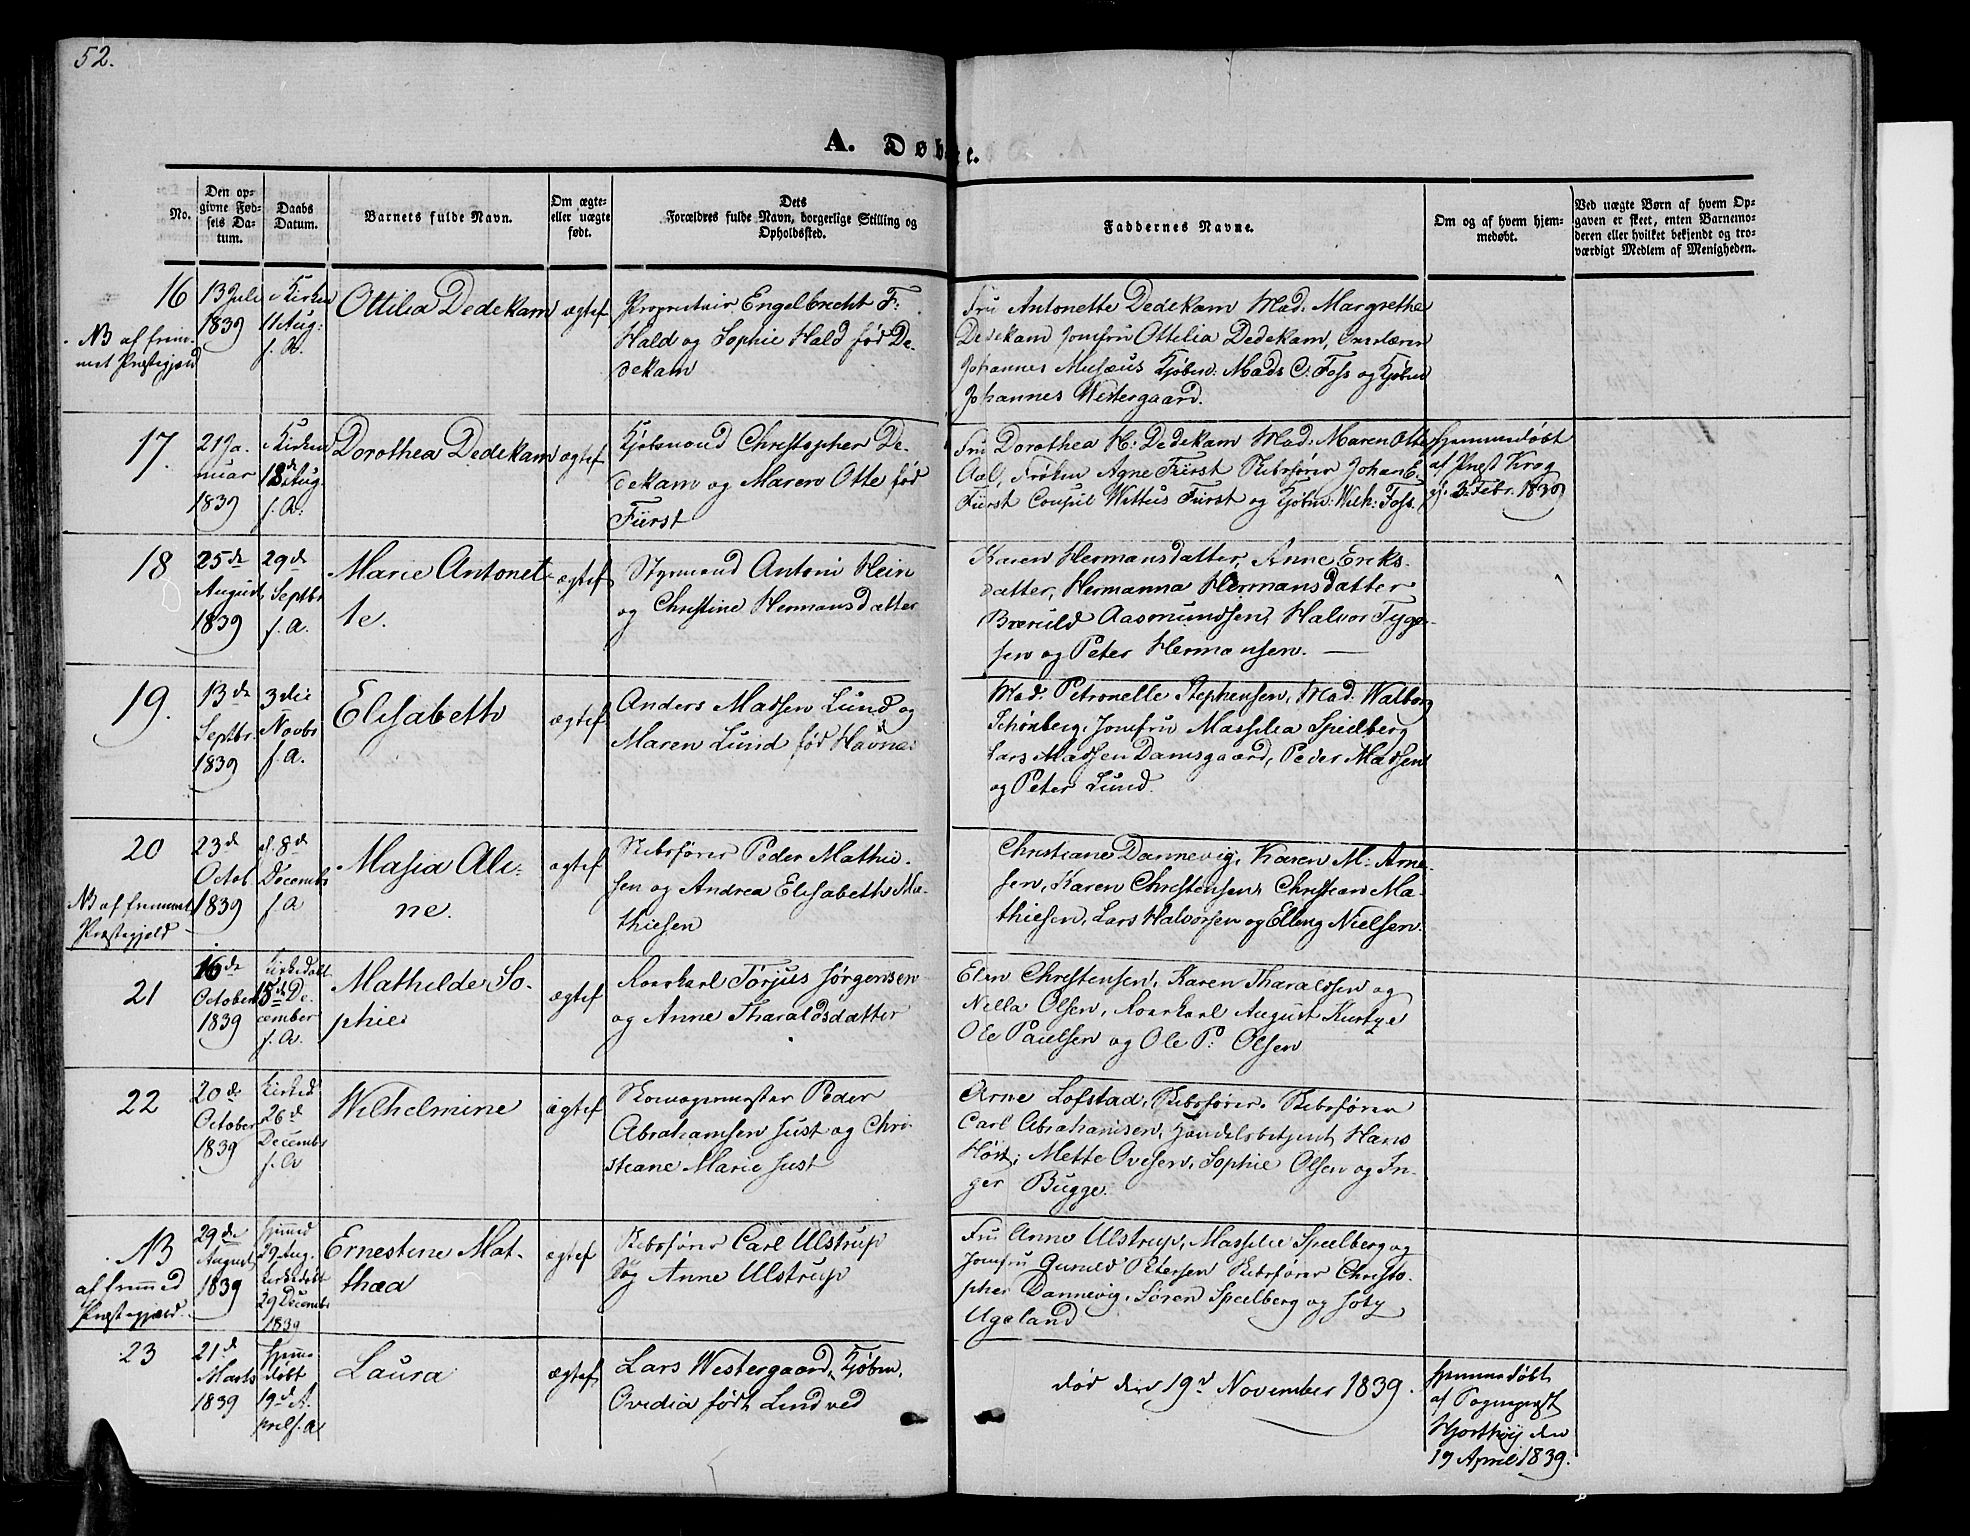 52.
A. Døbte.
No.
Den op-
givne Fød-
sels Da-
tum.
Daabs
Datum.
Barnets fulde Navn.
Om ægte
eller uægte
født.
Dets
Forældres fulde Navn, borgerlige Stilling og
Opholdssted.
Faddernes Navne.
Om og af hvem hjem-
medøbt.
Ved uægte Børn af hvem Op-
gaven er skeet, enten Barnemo-
deren eller hvilket bekjendt og tro-
værdigt Medlem af Menigheden.
16
NB af frem-
met Præstegjeld
13 Juli
1839
i Kirken
11 Aug:
f. A.
Ottilia Dedekam
ægtef
Proprietair Engelbrecht F:
Hald og Sophie Hald født De-
dekam
Fru Antonette Dedekam Mad. Margrethe
Dedekam Jomfru Ottilia Dedekam,
Johannes Musæus Kjøbm: Mads C. Foss og Kjøbm
Johannes Westergaard.
17.
21 Ja-
nuar
1839
i Kirken
18de Aug.
f. A.
Dorothea Dedekam
ægtef
Kjøbmand Christopher De-
dekam og Maren Otte fød
Fürst
Fru Dorothea H. Dedekam Mad. Maren Otte
Aal, Frøken Agne Fürst Skibsfører Johan E.
Fürst Consul Wittus Fürst og Kjøbm: Wilh: Foss.
Hjemmedøbt
af Præst Krog
d. 3. Febr. 1839
18
25de
August
1839
29de
Septbr
f. A.
Marie Antonet-
te.
ægtef
Styrmand Antoni Hein
og Christine Hermansdatter
Karen Hermansdatter, Anne Eriks-
datter, Hermanna Hermansdatter
Aasmundsen, Halvor Tyge-
sen og Peter Hermansen.
19.
13de
Septbr.
1839
3die
Novbr
f. A.
Elisabeth
ægtef
Anders Madsen Lund og
Maren Lund fød Havnæs
Mad. Petronelle Stephensen, Mad. Walborg
Schønberg, Jomfru Massilia Spielberg
Lars Madsen Damsgaard, Peder Madsen
og Peter Lund.
20
NB af fremmet
Præstegjeld
23de
Octob.
1839
d. 8de
Decembr
f. A
Masia Ali-
ne.
ægtef
Skibsfører Peder Mathie-
sen og Andrea Elisabeth Ma-
thiesen
Christiane Dannevig, Karen M. Arne-
sen, Karen Christensen, Christian Ma-
thiesen, Lars Halvorsen og Elling Nielsen.
21
16de
October
1839
Kirkedøbt
15de De-
cember
f. A.
Mathilde So-
phie
ægtef
Aarkarl Torjus Jørgensen
og Anne Tharaldsdatter
Elen Christensen, Karen Tharaldsen og
Nella Olsen, Aarkarl August
Ole Paulsen og Ole P. Olsen
22
20de
October
1839
Kirked
26de
Decembr
f. A
Wilhelmine
ægtef
Peder
Abrahamsen Just og Chri-
stiane Marie Just
Arne Lofstad, Skibsfører. Skibsfører
Carl Abrahamsen, Handelsbetjent Hans
Høst; Mette Ovesen, Sophie Olsen og In-
ger Bugge.
NB
af fremmed
Præstegjeld
29de
August
1839
Hjemmed
29 Aug.
Kirkedøbt
29 Decembr
1839
Ernestine Mat-
thea
ægtef
Skibsfører Carl Ulstrup
og Anne Ulstrup
Fru Anne Ulstrup, Massilie Spielberg og
Jomfru Gunild Petersen Skibsfører Christo-
pher Dannevig, Søren Spielberg og
Ugeland
23
21de
Marts
1839
Hjemme
døbt
19de A-
pril f. A
Laura
ægtef
Lars Westergaard, Kjøbm,
Ovidia født Lindved
død den 19d November 1839.
Hjemmedøbt
af Sognepræst
Hjorthøy den
19 April 1839.